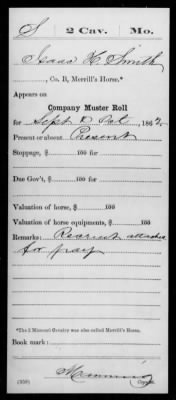 S 2 Cav. Mo.
Isaac H. Smith
, Co. B, Merrill's Horse.*
Appears on
Company Muster Roll
for Sept & Oct, 1862.
Present or absent Present
Stoppage, $ 100 for
Due Gov't, $ 100 for
Valuation of horse, $ 100
Valuation of horse equipments, $ 100
Remarks: attached
for pay
*The 2 Missouri Cavalry was also called Merrill's Horse.
Book mark:
(358) Copyist.